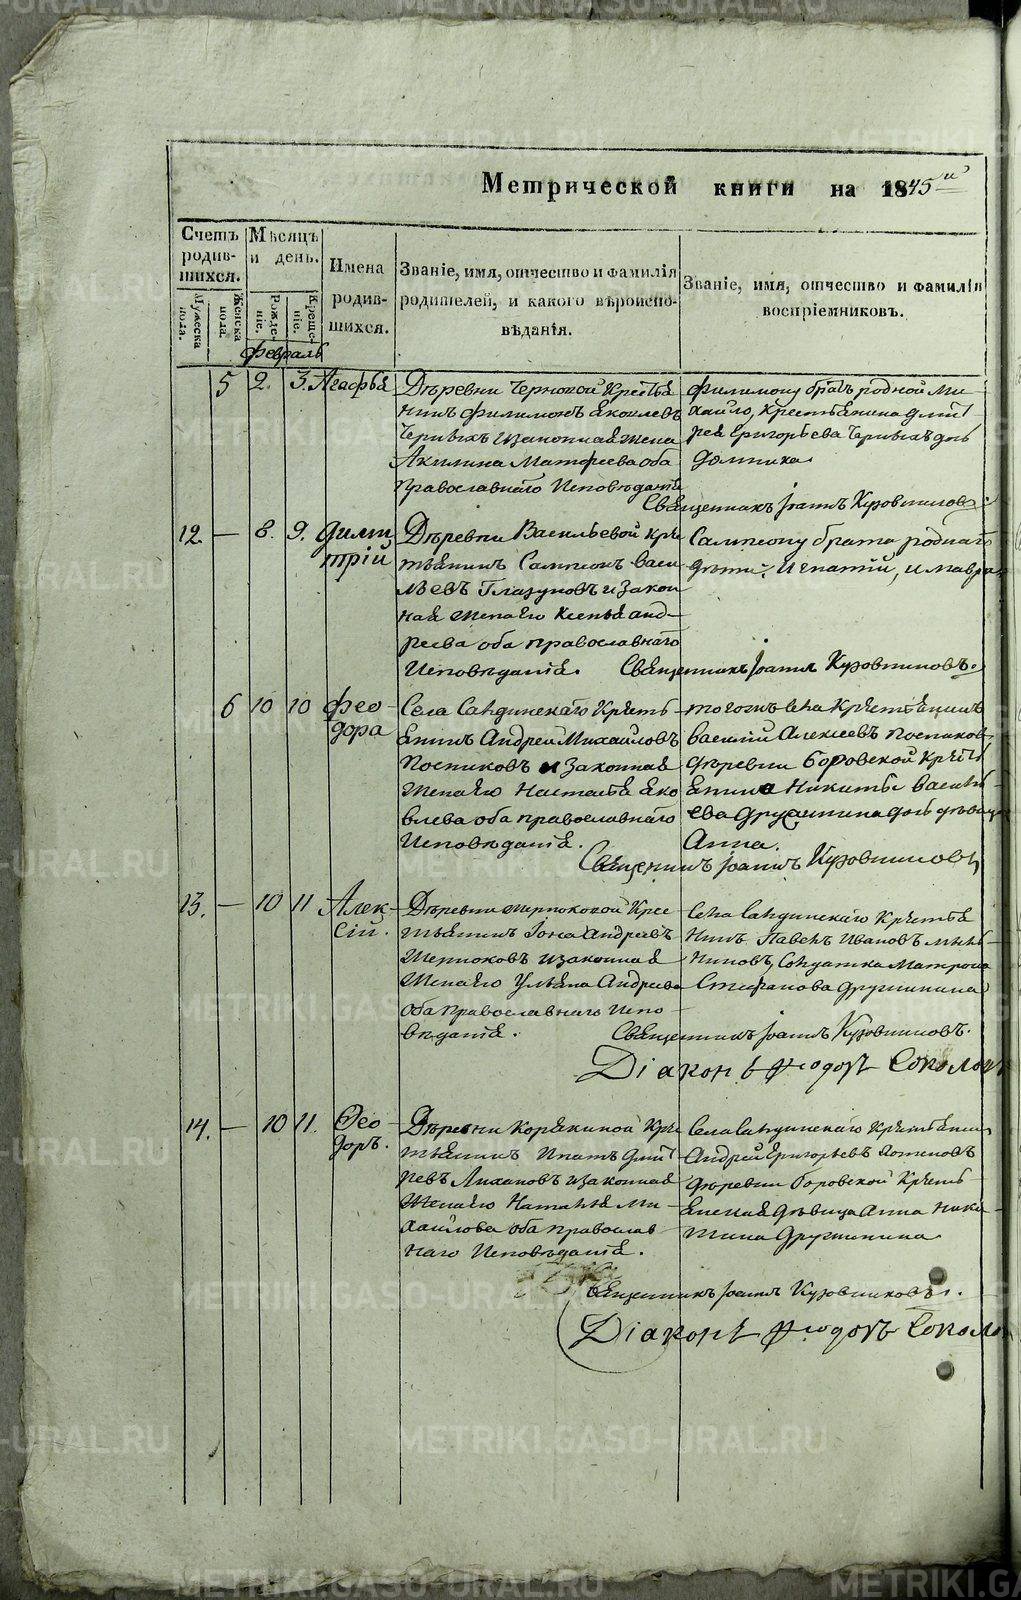 METRIKI.GASO-URAL.RU
Метрической книги на 1845й
Счетъ родив-шихся.
Мужеска пола.
Женска пола.
Мѣсяцъ и день.
Рожде-ніе.
Креще-ніе.
Имена родив-шихся.
Званіе, имя, отчество и фамилія
родителей, и какого вѣроиспо-
вѣданія.
Званіе, имя, отчество и фамилія
воспріемниковъ.
Февраль
5 2. 3. Агафья
Деревни Черновой Кресьтья
нинъ Филимонъ Яковлевъ
Черныхъ и законная жена
Акилина Матфеева оба
православнаго Исповѣданія
Филимону братъ родной Ми
хайло, Крестьянина Дмит
рея Григорьева Черныхъ дочь
Домника
Священникъ Іоаннъ Кузовниковъ.
12. — 8. 9. Дими
трій
Деревни Васильевой Кре
тьянинъ Сампсонъ Васи
льевъ Глазуновъ и закон
ная жена его Ксенья Анд-
реева оба православнаго
Исповѣданія.
Сампсону брата роднаго
дѣти: Игнатій, и Мавра
Священникъ Іоаннъ Кузовниковъ.
6 10 10 Фео-
дора
Села Сандинскаго Кресть-
янинъ Андрей Михайловъ
Постниковъ и законная
жена его Настасья Яко
влева оба православнаго
Исповѣданія.
того жъ села Крестьянинъ
Василій Алексеевъ Постников
деревни Боровской Крест
янина Никиты Василь
ева Дружинина дочь девица
Анна.
Священникъ Іоаннъ Кузовниковъ
13. — 10 11 Алек-
сій.
Деревни Черноковой Крес
тьянинъ Іона Андреевъ
Черноковъ и законная
жена его Ульяна Андреева
оба православнаго Испо-
вѣданія.
села Сандинскаго Крестья
нинъ Павелъ Ивановъ
Солдатка Матрона
Стефанова Дружинина
Священникъ Іоаннъ Кузовниковъ.
Діаконъ Ѳеодоръ Соколов
14. — 10 11. Ѳео
доръ.
Деревни Корякиной Кре
тьянинъ Игнатъ Дмит
ревъ Лихановъ и законная
жена его Наталья Ми-
хайлова оба православ
наго Исповѣданія.
Села Сандинскаго Крестьянин
Андрей Григорьевъ
деревни Боровской Кресть
янская девица Анна Ники-
тина Дружинина
Священникъ Іоаннъ Кузовниковъ.
Діаконъ Ѳеодоръ Соколо